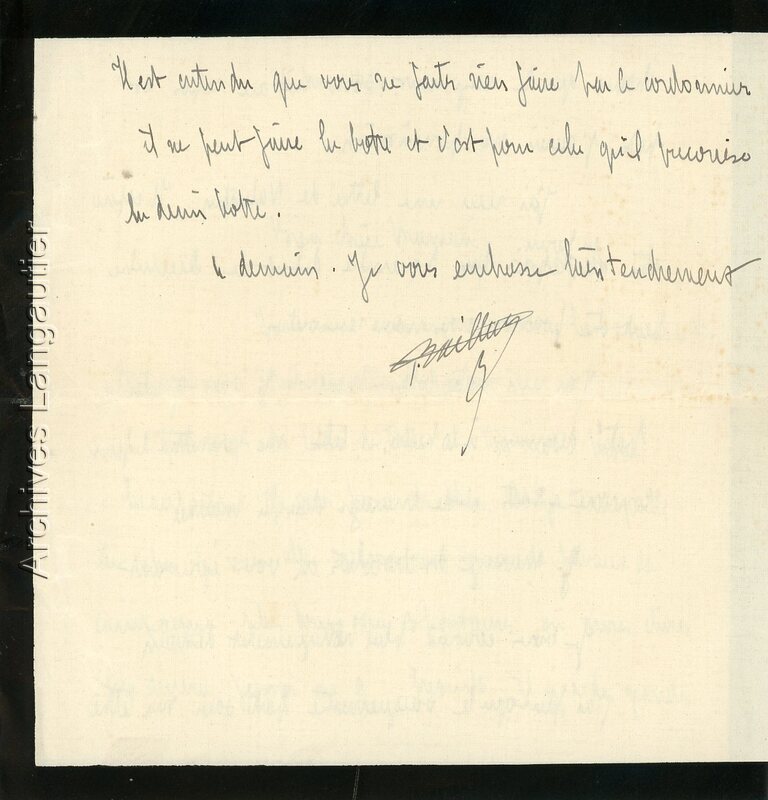 Il est entendu que vous ne faites rien faire par le cordonnier
il ne peut faire la botte et c'est pour cela qu'il préconise
la demi botte.
à demain. Je vous embrasse bien tendrement
Archives Langautier